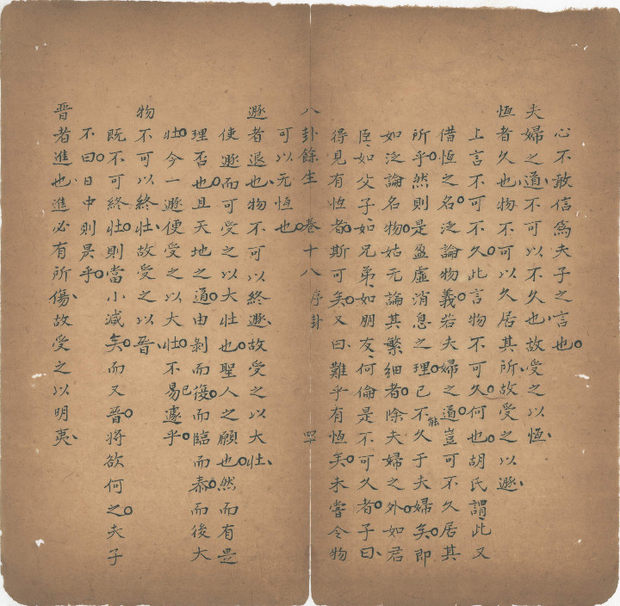 心不敢信為夫子之言也
夫婦之道不可以不久也故受之以恆
恆者久也物不可以久居其所故受之以遯
上言不可不久此言物不可久何也胡氏謂此又
借恆之名泛論物義若夫婦之道豈可不久居其
所乎然則是盈虛消息之理已不能久于夫婦矣即
如泛論名物姑无論其繁細者除夫婦之外如君
臣如父子如兄弟如朋友何倫是不可久者子曰
得見有恆者斯可矣又曰難乎有恆矣未嘗令物
八卦餘生 卷十八 序卦 四
可以无恆也
遯者退也物不可以終遯故受之以大壯
使遯而可受之以大壯也聖人之願也然而有是
理否也且天地之道由剝而復而臨而泰而後大
壯今一遯便受之以大壯不易已遽乎
物不可以終壯故受之以晉
既不可終壯則當小減矣而又晉將欲何之夫子
不曰日中則昃乎
晉者進也進必有所傷故受之以明夷